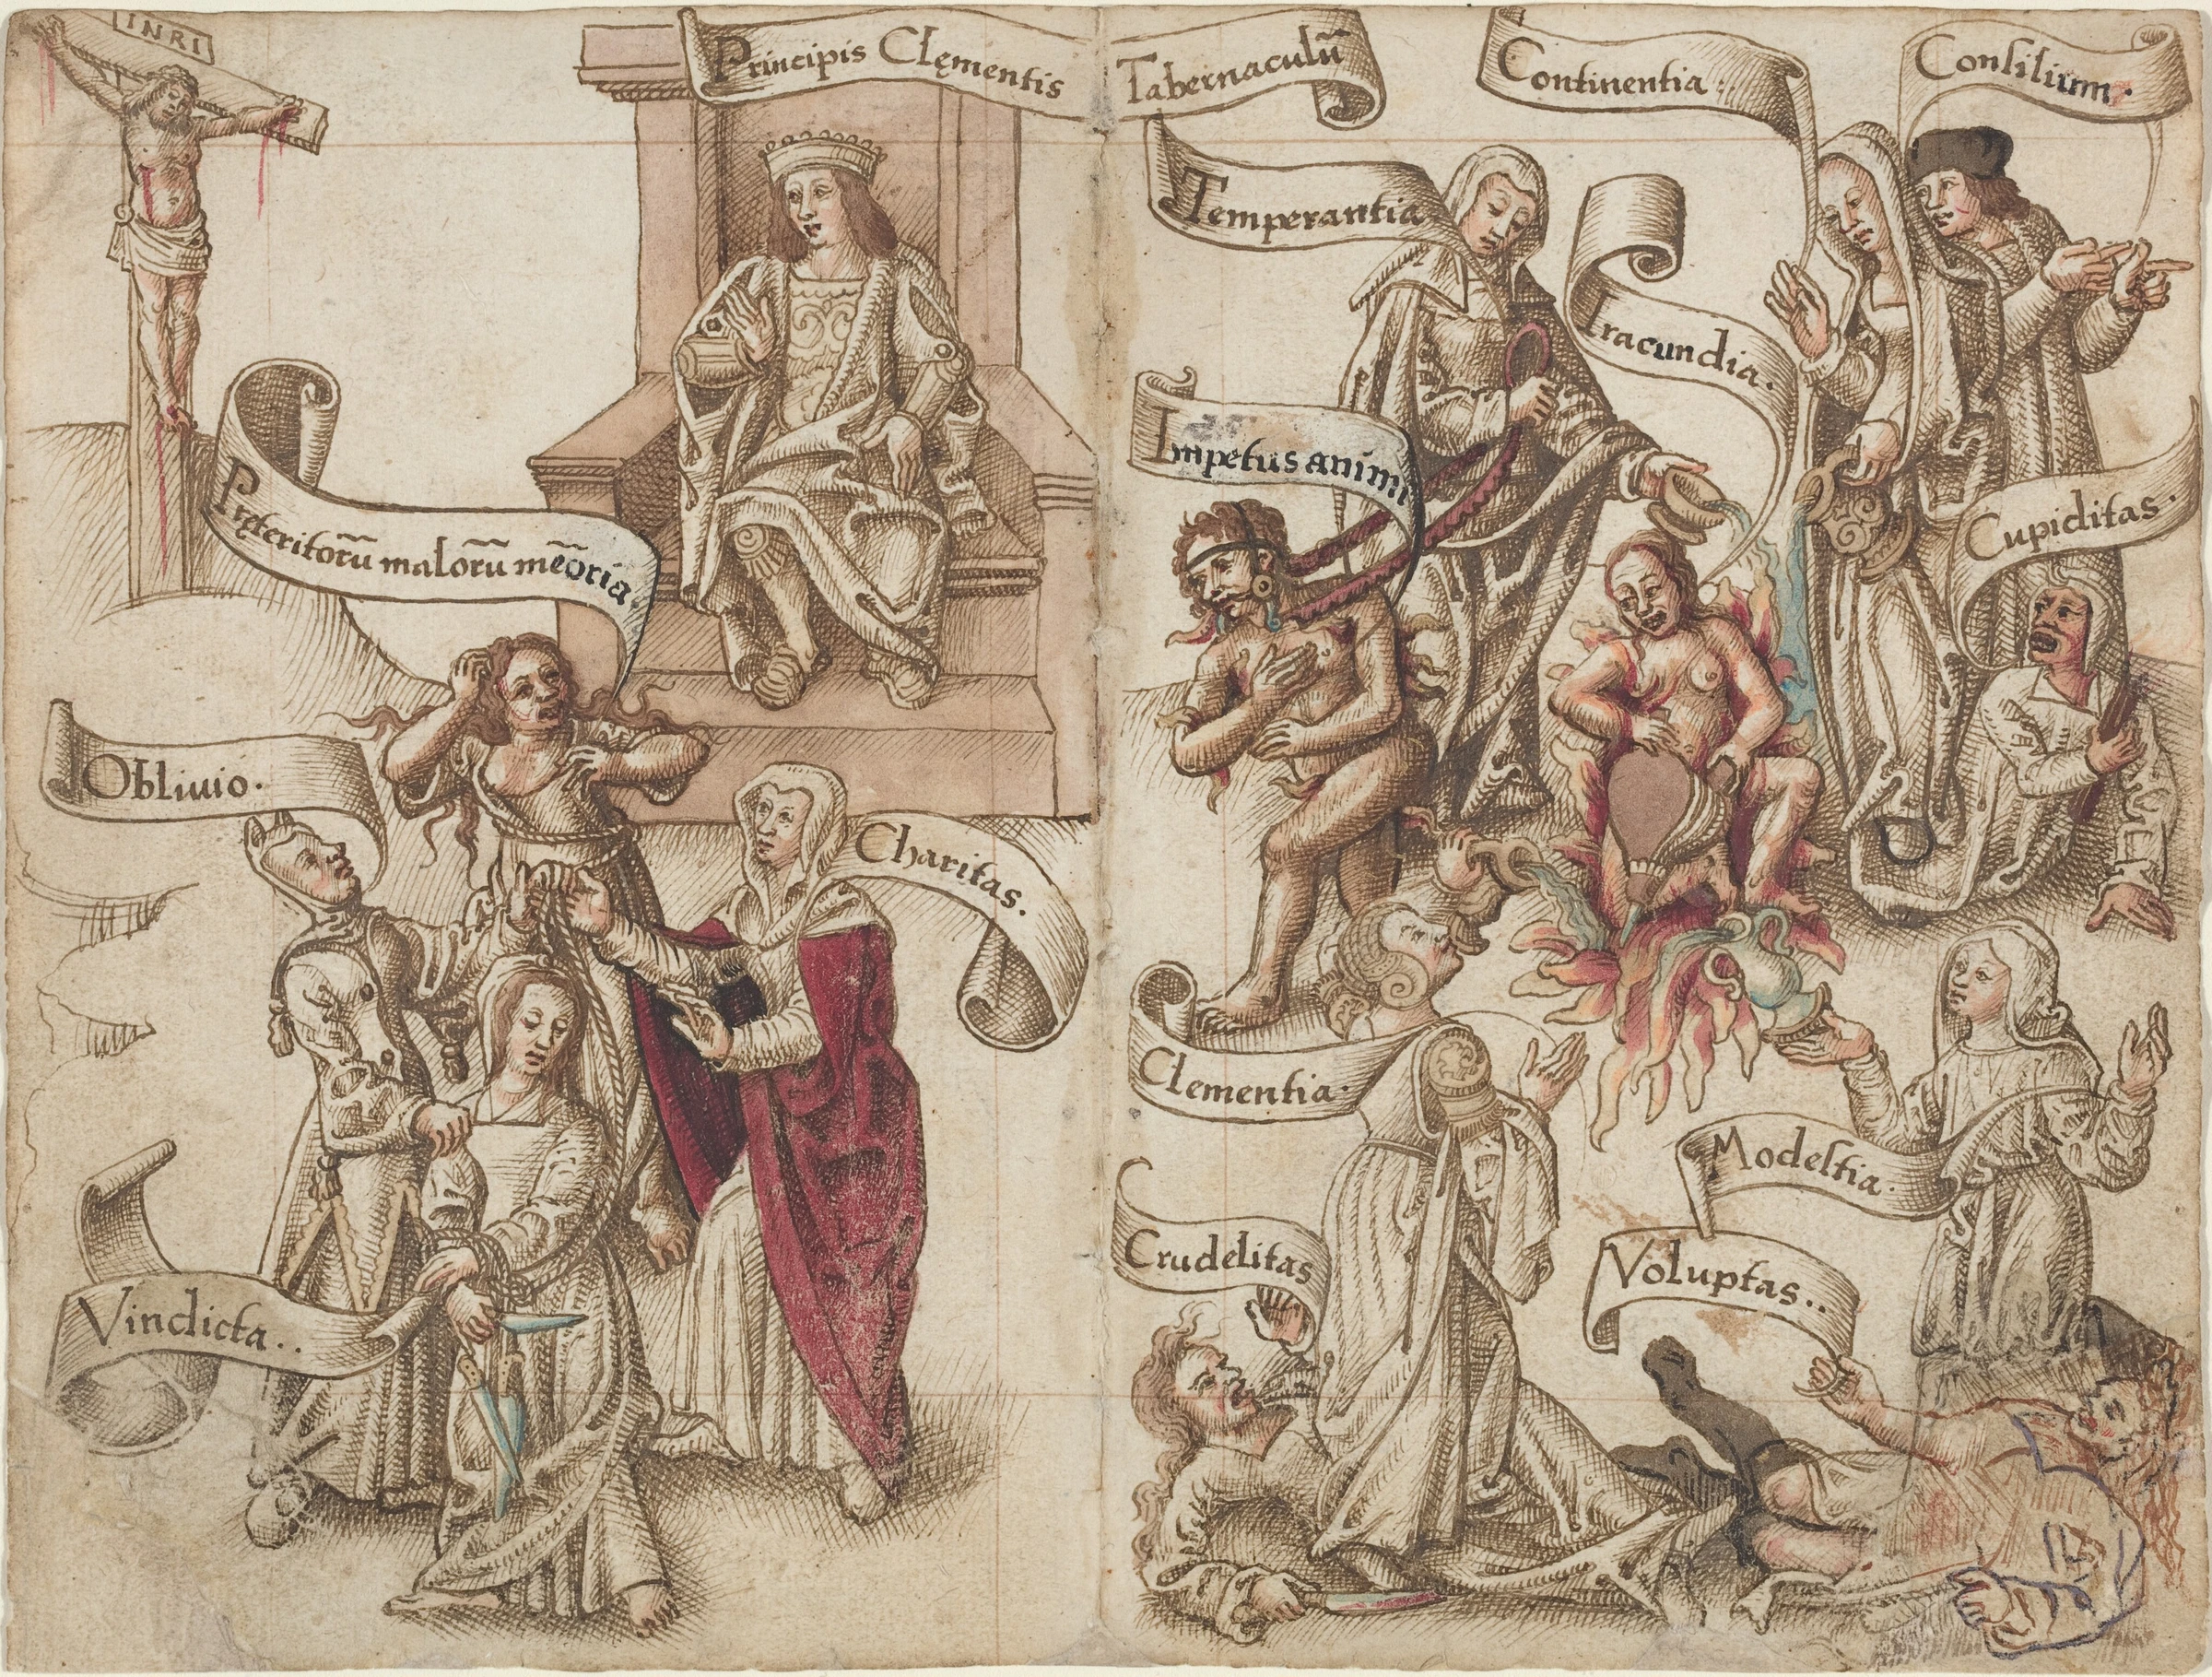 INRI
Principis Clęmentis Tabernaculū
Continentia:
Consilium.
Temperantia
Iracundia.
Impetus animi
Cupiditas.
Pręteritorū malorū mēoria
Obliuio.
Charitas.
Clementia.
Modestia.
Crudelitas
Voluptas..
Vindicta..